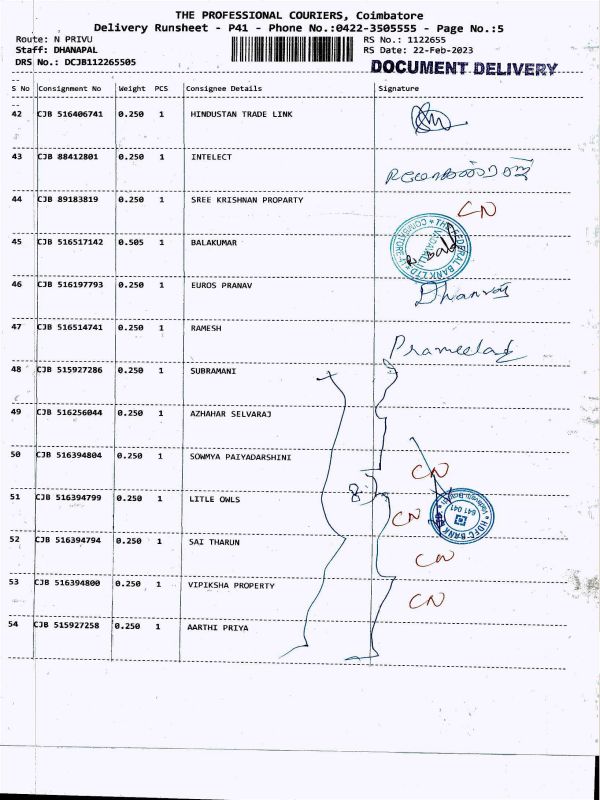 THE PROFESSIONAL COURIERS, Coimbatore
Delivery Runsheet - P41 - Phone No.:0422-3505555 - Page No.:5
Route: N PRIVU RS No.: 1122655
Staff: DHANAPAL RS Date: 22-Feb-2023
DRS No.: DCJB112265505
DOCUMENT DELIVERY
S No Consignment No Weight PCS Consignee Details Signature
42 CJB 516406741 0.250 1 HINDUSTAN TRADE LINK
43 CJB 88412801 0.250 1 INTELECT
44 CJB 89183819 0.250 1 SREE KRISHNAN PROPARTY CN
45 CJB 516517142 0.505 1 BALAKUMAR
THE FEDERAL BANK LTD COIMBATORE
46 CJB 516197793 0.250 1 EUROS PRANAV
47 CJB 516514741 0.250 1 RAMESH
48 CJB 515927286 0.250 1 SUBRAMANI
49 CJB 516256044 0.250 1 AZHAHAR SELVARAJ
50 CJB 516394804 0.250 1 SOWMYA PAIYADARSHINI CN
51 CJB 516394799 0.250 1 LITLE OWLS CN
HDFC BANK 641 041
52 CJB 516394794 0.250 1 SAI THARUN CN
53 CJB 516394800 0.250 1 VIPIKSHA PROPERTY CN
54 CJB 515927258 0.250 1 AARTHI PRIYA